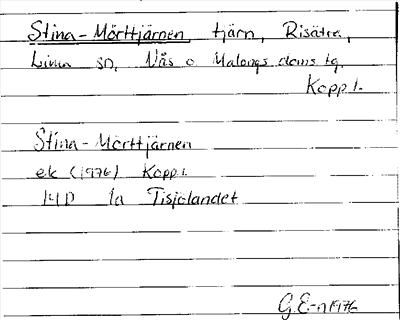 Stina-Mörttjärnen, tjärn, Risätra,
Lima sn, Nås o Malungs doms lg,
Kopp. l.
Stina-Mörttjärnen
ek (1976) Kopp. l.
14D 1a Tisjölandet
G.E-n 1976